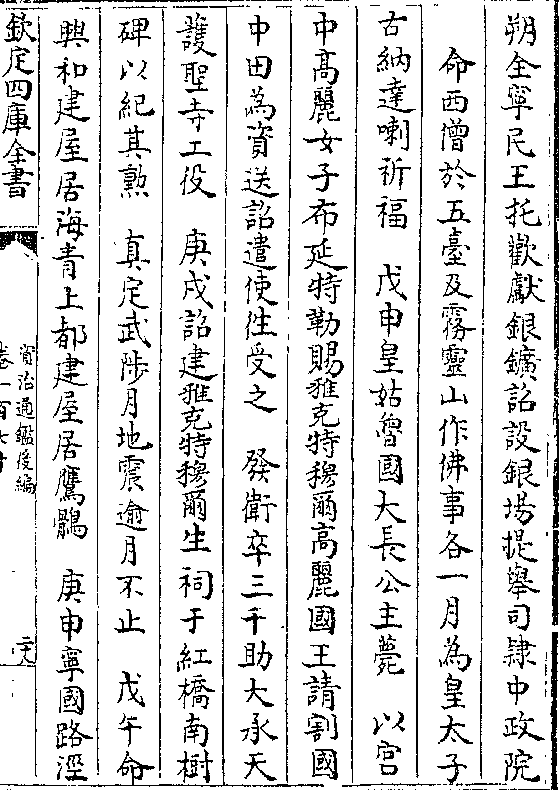 朔全寧民王托歡獻銀鑛詔設銀場提舉司隷中政院
命西僧於五臺及霧靈山作佛事各一月為皇太子
古納達喇祈福　戊申皇姑魯國大長公主薨　以宫
中高麗女子布延特勒賜雅克特穆爾高麗國王請割國
中田為資送詔遣使往受之　發衛卒三千助大承天
護聖寺工役　庚戌詔建雅克特穆爾生祠于紅橋南樹
碑以紀其勲　真定武陟月地震逾月不止　戊午命
興和建屋居海青上都建屋居鷹鶻　庚申寧國路涇
欽定四庫全書
資治通鑑後編
卷一百七十